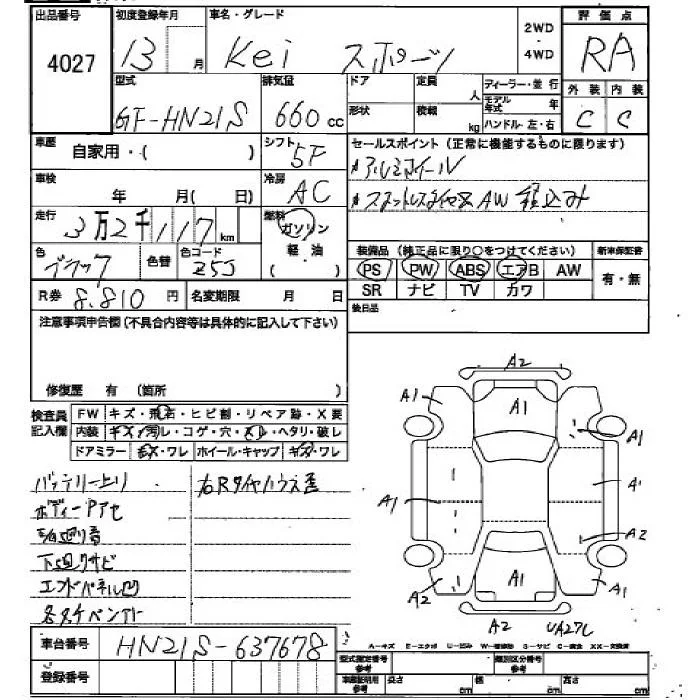 出品番号 初度登録年月 車名・グレード 評価点
4027 13 月 Kei スポーツ 2WD ・ 4WD RA
型式 排気量 ドア 定員 人 ディーラー・並行 外装 内装
GF-HN21S 660 cc 形状 積載 kg モデル年式 年 ハンドル 左・右 C C
車歴 自家用・( ) シフト 5F セールスポイント(正常に機能するものに限ります)
車検 年 月(日) 冷房 AC アルミホイール
スタットレスタイヤ AW 積込み
走行 3万2千117 km 燃料 ガソリン 軽・油 ( )
色 ブラック 色替 色コード Z5J 装備品(純正品に限り○をつけてください) 新車保証書
PS PW ABS エアB AW 有・無
R券 8.810 円 名変期限 月 日 SR ナビ TV カワ
注意事項申告欄(不具合内容等は具体的に記入して下さい) 後日品
修復歴 有 (箇所 )
検査員記入欄 FW キズ・飛石・ヒビ割・リペア跡・X要
内装 キズ・汚レ・コゲ・穴・スレ・ヘタリ・破レ
ドアミラー キズ・ワレ ホイール・キャップ キズ・ワレ
バッテリー上り 右Rタイヤハウス歪
ボディーPアセ
下廻りサビ
エンドパネル凹
A2
A1 A1 A1
A1 A1
A2
A2 A1 A1
A2
車台番号 HN21S-637678
登録番号
A-キズ E-エクボ U-凹み W-補修跡 S-サビ C-腐食 XX-交換済
型式指定番号 参考 類別区分番号 参考
車庫証明用 参考 長さ cm 幅 cm 高さ cm